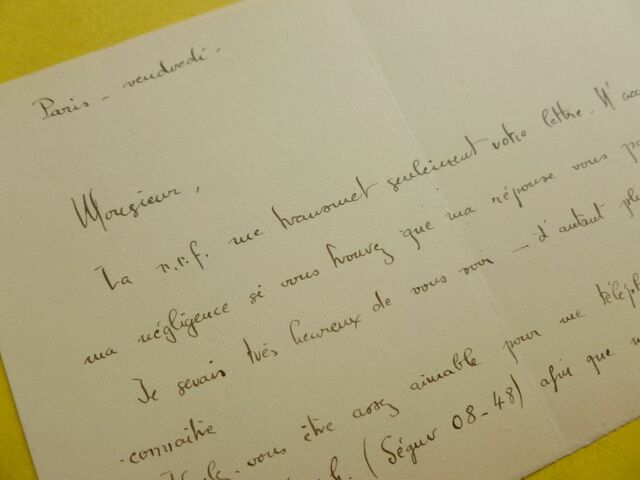 Paris - vendredi -
Monsieur,
La n.r.f. me transmet seulement votre lettre. N'acc
ma négligence si vous trouvez que ma réponse vous pa
Je serais très heureux de vous voir — d'autant plu
connaître
vous être assez aimable pour me télép
(Ségur 08-48) afin que n